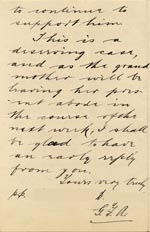 to continue to
support him
This is a
deserving case,
and as the grand
mother will be
leaving her pre
sent abode in
the course of the
next week, I shall
be glad to have
an early reply
from you.
Yours very truly